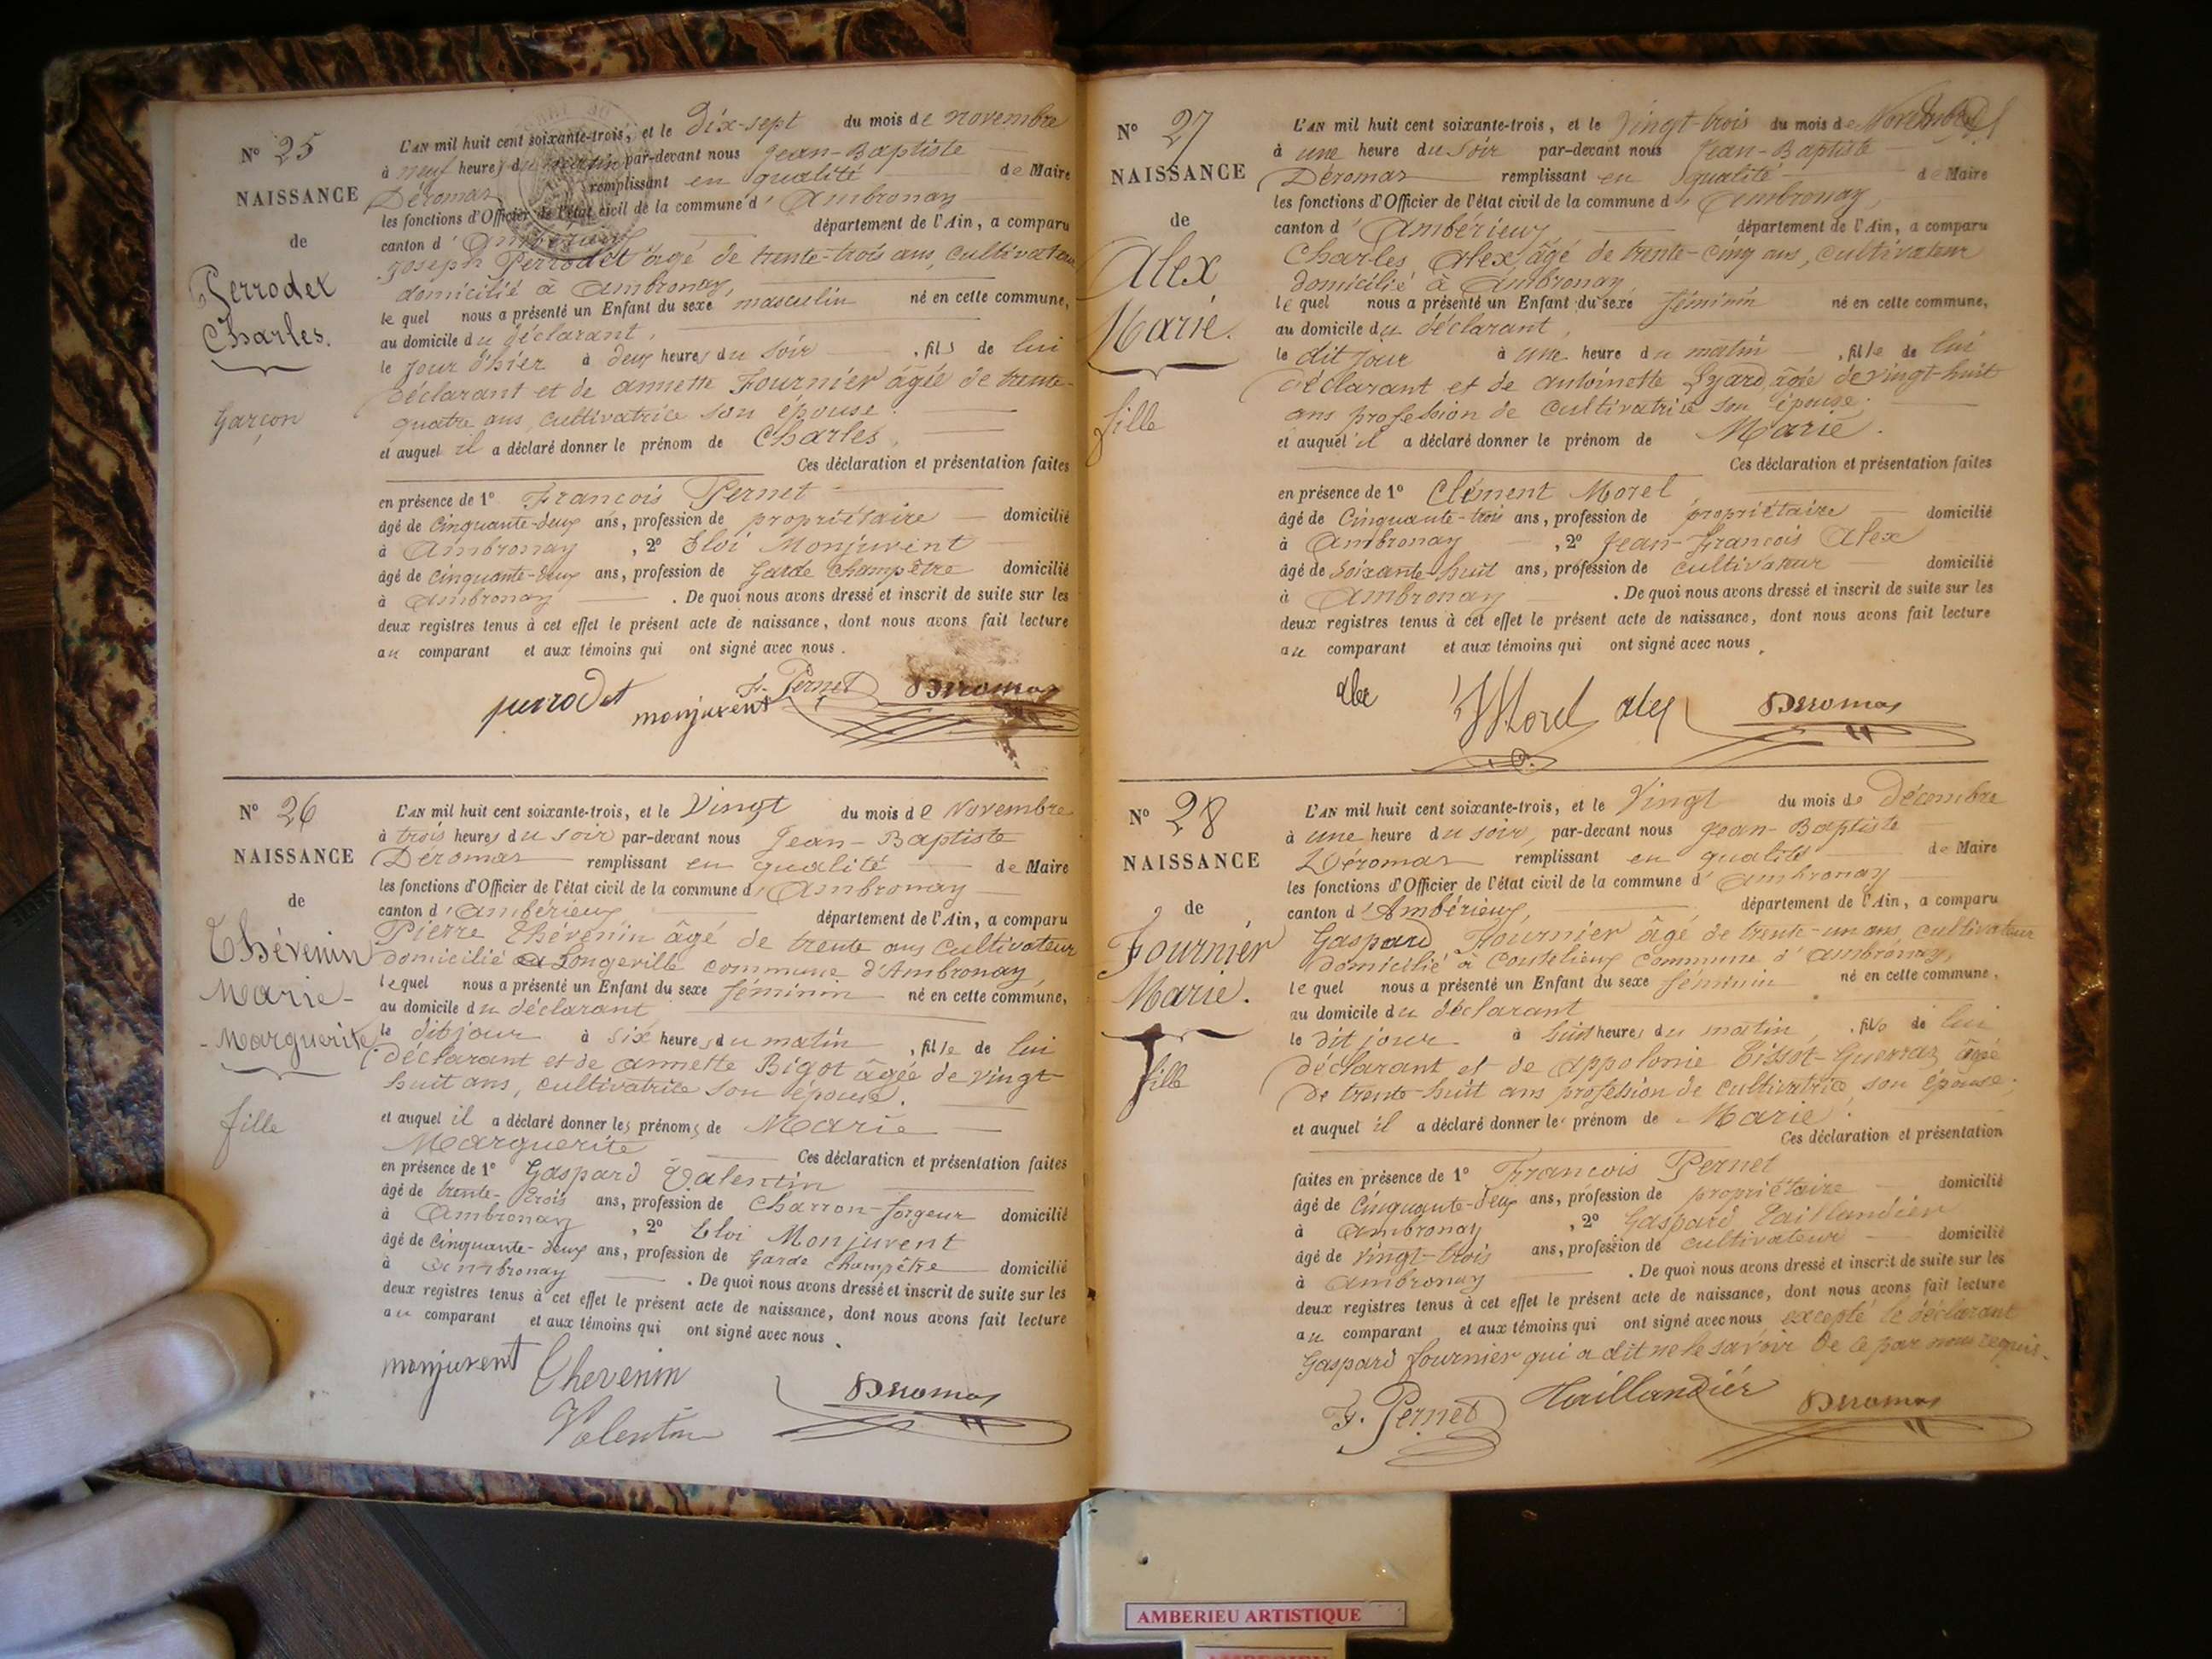 N° 25
NAISSANCE
de
Perrodet
Charles.
Garçon
L'AN mil huit cent soixante-trois, et le Dix-sept du mois de novembre
à neuf heures du matin par-devant nous Jean-Baptiste
Déromas remplissant en qualité de Maire
les fonctions d'Officier de l'état civil de la commune d' Ambronay
canton d' Ambérieux département de l'Ain, a comparu
Joseph Perrodet âgé de trente-trois ans, cultivateur
domicilié à Ambronay,
lequel nous a présenté un Enfant du sexe masculin né en cette commune,
au domicile du déclarant,
le jour d'hier à deux heures du soir, fils de lui
déclarant et de annette Fournier âgée de trente-
quatre ans, cultivatrice son épouse.
et auquel il a déclaré donner le prénom de Charles,
Ces déclaration et présentation faites
en présence de 1° François Pernet
âgé de Cinquante-deux ans, profession de propriétaire domicilié
à Ambronay, 2° Eloi Monjuvent
âgé de cinquante-deux ans, profession de Garde Champêtre domicilié
à Ambronay. De quoi nous avons dressé et inscrit de suite sur les
deux registres tenus à cet effet le présent acte de naissance, dont nous avons fait lecture
au comparant et aux témoins qui ont signé avec nous.
perrodet monjuvent F. Pernet Deromas
N° 26
NAISSANCE
de
Thévenin
Marie-
-Marguerite
fille
L'AN mil huit cent soixante-trois, et le Vingt du mois de Novembre
à trois heures du soir par-devant nous Jean-Baptiste
Déromas remplissant en qualité de Maire
les fonctions d'Officier de l'état civil de la commune d' Ambronay
canton d' Ambérieux département de l'Ain, a comparu
Pierre Thévenin âgé de trente ans cultivateur
domicilié à Longeville commune d'Ambronay,
lequel nous a présenté un Enfant du sexe féminin né en cette commune,
au domicile du déclarant
le dit jour à six heures du matin, fille de lui
déclarant et de annette Bigot âgée de vingt-
huit ans, cultivatrice son épouse.
et auquel il a déclaré donner les prénoms de Marie
Marguerite Ces déclaration et présentation faites
en présence de 1° Gaspard Valentin
âgé de trente-trois ans, profession de Charron-forgeur domicilié
à Ambronay, 2° Eloi Monjuvent
âgé de Cinquante-deux ans, profession de Garde champêtre domicilié
à Ambronay. De quoi nous avons dressé et inscrit de suite sur les
deux registres tenus à cet effet le présent acte de naissance, dont nous avons fait lecture
au comparant et aux témoins qui ont signé avec nous.
monjuvent Thevenin Deromas
Valentin
N° 27
NAISSANCE
de
Alex
Marie.
fille
L'AN mil huit cent soixante-trois, et le Vingt-trois du mois de Novembre
à une heure du soir par-devant nous Jean-Baptiste
Déromas remplissant en qualité de Maire
les fonctions d'Officier de l'état civil de la commune d' Ambronay,
canton d' Ambérieux département de l'Ain, a comparu
Charles Alex, âgé de trente-cinq ans, cultivateur
domicilié à Ambronay
lequel nous a présenté un Enfant du sexe féminin né en cette commune,
au domicile du déclarant,
le dit jour à une heure du matin, fille de lui
déclarant et de antoinette Lyard, âgée de vingt-huit
ans profession de cultivatrice son épouse;
et auquel il a déclaré donner le prénom de Marie.
Ces déclaration et présentation faites
en présence de 1° Clément Morel
âgé de Cinquante-trois ans, profession de propriétaire domicilié
à Ambronay, 2° Jean-François Alex
âgé de Soixante-huit ans, profession de cultivateur domicilié
à Ambronay. De quoi nous avons dressé et inscrit de suite sur les
deux registres tenus à cet effet le présent acte de naissance, dont nous avons fait lecture
au comparant et aux témoins qui ont signé avec nous.
alex Morel alex Deromas
N° 28
NAISSANCE
de
Fournier
Marie.
fille
L'AN mil huit cent soixante-trois, et le Vingt du mois de Décembre
à une heure du soir, par-devant nous Jean-Baptiste
Déromas remplissant en qualité de Maire
les fonctions d'Officier de l'état civil de la commune d' Ambronay
canton d' Ambérieux, département de l'Ain, a comparu
Gaspard Fournier âgé de trente-un ans, cultivateur
domicilié à Coutelieux commune d'ambronay,
lequel nous a présenté un Enfant du sexe féminin né en cette commune,
au domicile du déclarant
le dit jour à huit heures du matin, fille de lui
déclarant et de appolonie Tissot-Guerraz, âgée
de trente-huit ans profession de cultivatrice, son épouse;
et auquel il a déclaré donner le prénom de Marie.
Ces déclaration et présentation
faites en présence de 1° François Pernet
âgé de Cinquante-deux ans, profession de propriétaire domicilié
à Ambronay, 2° Gaspard Taillandier
âgé de Vingt-trois ans, profession de cultivateur domicilié
à Ambronay. De quoi nous avons dressé et inscrit de suite sur les
deux registres tenus à cet effet le présent acte de naissance, dont nous avons fait lecture
au comparant et aux témoins qui ont signé avec nous excepté le déclarant
Gaspard fournier qui a dit ne le savoir de ce par nous requis.
F. Pernet Taillandier Deromas
AMBERIEU ARTISTIQUE